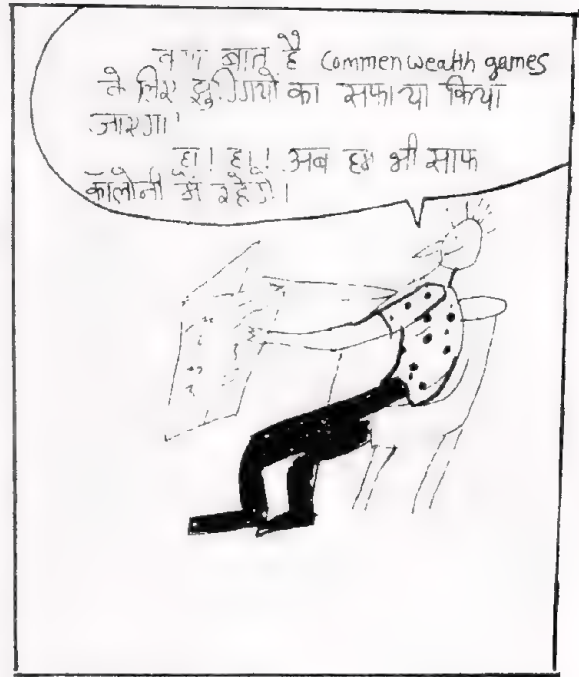 क्या बात है Commenwealth games
के लिए झुग्गियों का सफाया किया
जाएगा
हा! हा! अब हम भी साफ
कॉलोनी में रहेगे।